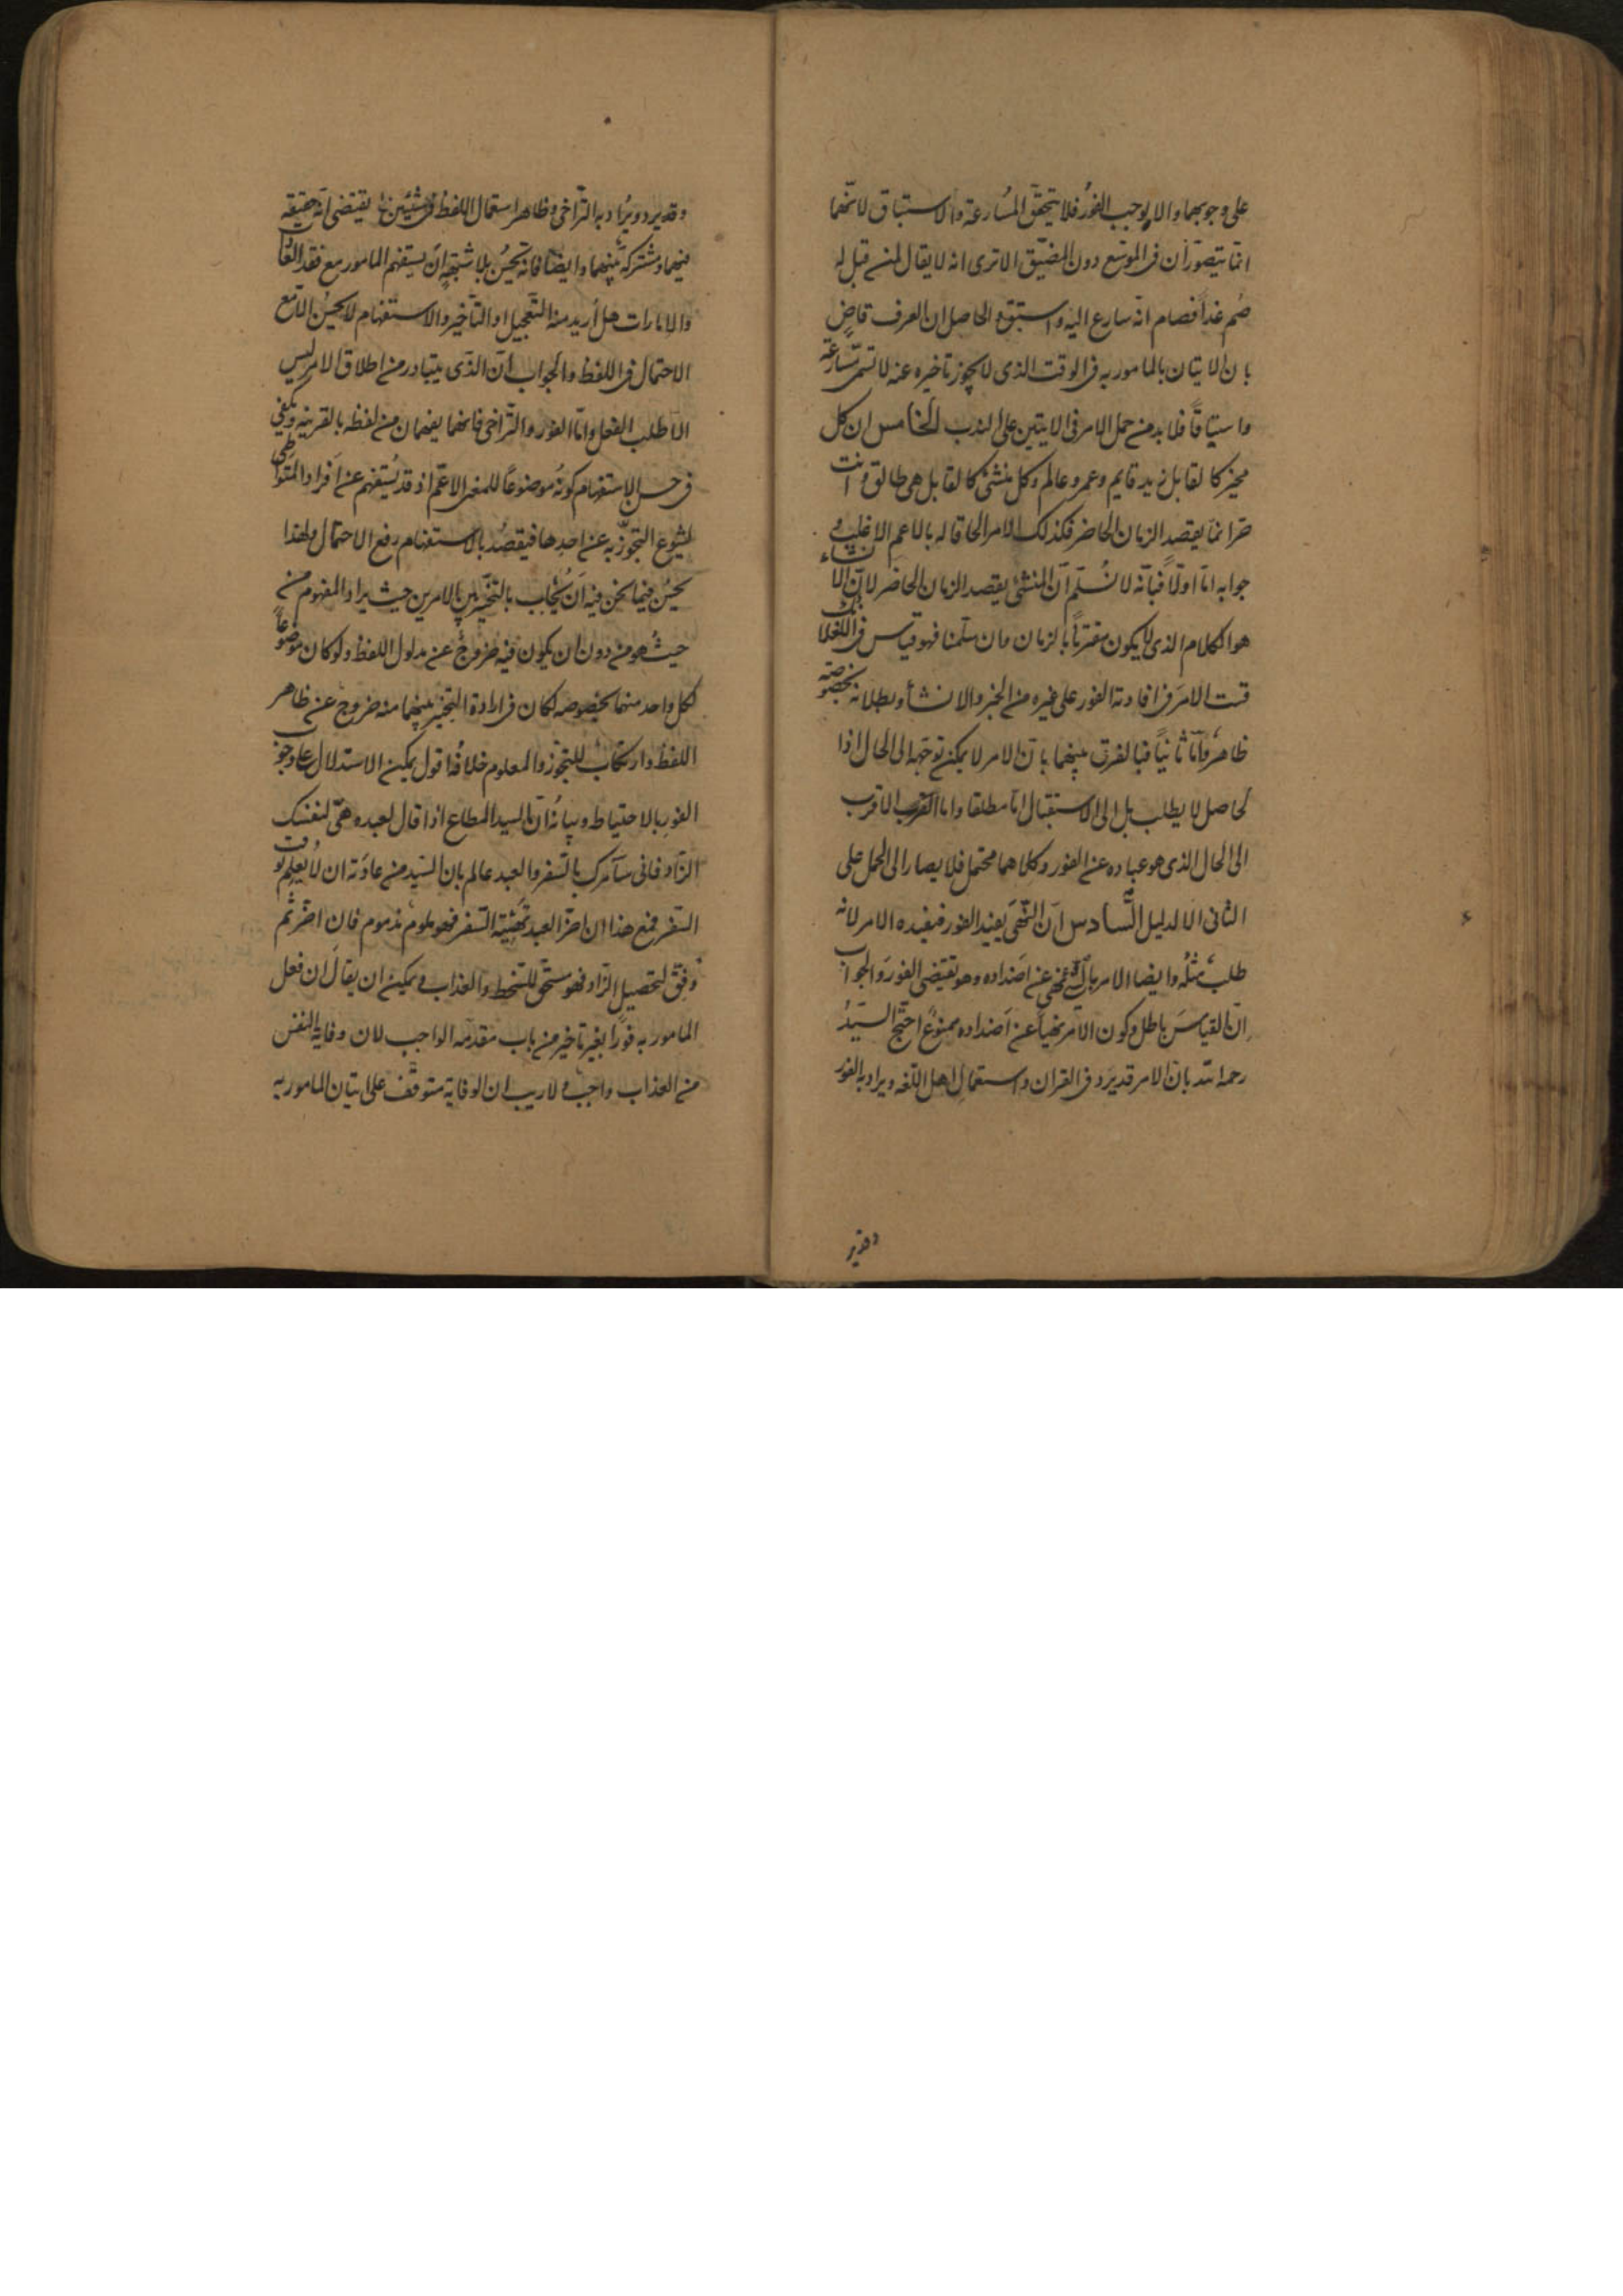 على وجوبهما والا لوجب الفور فلا يتحقق المسارعة والاستباق لانهما
انما يتصوران فى الموسع دون المضيق الا ترى انه لا يقال لمن قيل له
صم غداً فصام انه سارع اليه واستبق والحاصل ان العرف قاضٍ
بان الاتيان بالمامور به فى الوقت الذى لا يجوز تاخيره عنه لا تسمى مسارعة
واستباقاً فلا بد من حمل الامر فى الايتين على الندب الخامس ان كل
مخبر كالقايل زيد قايم وعمرو عالم وكل منشئ كالقايل هى طالق وانت
حر انما يقصد الزمان الحاضر فكذلك الامر الحاقا له بالاعم الاغلب و
جوابه اما اولاً فبانه لا نسلم ان المنشئ يقصد الزمان الحاضر لان الانشاء
هو الكلام الذى لا يكون مقترناً بالزمان وان سلمنا فهو قياس فى اللغة لانك
قست الامر فى افادته الفور على غيره من الخبر والانشاء وبطلانه بخصوصه
ظاهر واما ثانياً فبالفرق بينهما بان الامر لا يمكن توجهه الى الحال اذا
لحاصل لا يطلب بل الى الاستقبال اما مطلقا واما الاقرب
الى الحال الذى هو عباره عن الفور وكلاهما محتمل فلا يصار الى الحمل على
الثانى الا لدليل السادس ان النهى يفيد الفور فيفيده الامر لانه
طلب مثله وايضا الامر بالشئ نهى عن اضداده وهو يقتضى الفور والجواب
ان القياس باطل وكون الامر نهياً عن اضداده ممنوع احتج السيد
رحمه الله بان الامر قد يرد فى القران واستعمال اهل اللغه ويراد به الفور
وقد ير
وقد يرد ويراد به التراخى وظاهر استعمال اللفظ فى شيئين يقتضى انه حقيقة
فيهما ومشتركة بينهما وايضا فانه يحسن بلا شبهة ان يستفهم المامور مع فقد العادات
والامارات هل اريد منه التعجيل او التاخير والاستفهام لا يحسن الا مع
الاحتمال فى اللفظ والجواب ان الذى يتبادر من اطلاق الامر ليس
الا طلب الفعل واما الفور والتراخى فانهما يفهمان من لفظه بالقرينه ويكفى
فى حسن الاستفهام كونه موضوعاً للمعنى الاعم اذ قد يستفهم عن افراد المتواطى
لشيوع التجوز به عن احدها فيقصد بالاستفهام رفع الاحتمال ولهذا
يحسن فيما نحن فيه ان يجاب بالتخيير بين الامرين حيث يراد المفهوم من
حيث هو من دون ان يكون فيه خروج عن مدلول اللفظ ولو كان موضوعاً
لكل واحد منهما بخصوصه لكان فى ارادة التخيير بينهما منه خروج عن ظاهر
اللفظ وارتكاب للتجوز والمعلوم خلافه اقول يمكن الاستدلال على وجوب
الفور بالاحتياط وبيانه ان السيد المطاع اذا قال لعبده هئ لنفسك
الزاد فانى سآمرك بالسفر والعبد عالم بان السيد من عادته ان لا يعلم بوقت
السفر فمع هذا ان اخر العبد تهيئة السفر فهو ملوم مذموم فان اخر ثم
وفق لتحصيل الزاد فهو مستحق للسخط والعذاب ويمكن ان يقال ان فعل
المامور به فوراً بغير تاخير من باب مقدمه الواجب لان وقاية النفس
من العذاب واجب ولا ريب ان الوقاية متوقف على اتيان المامور به